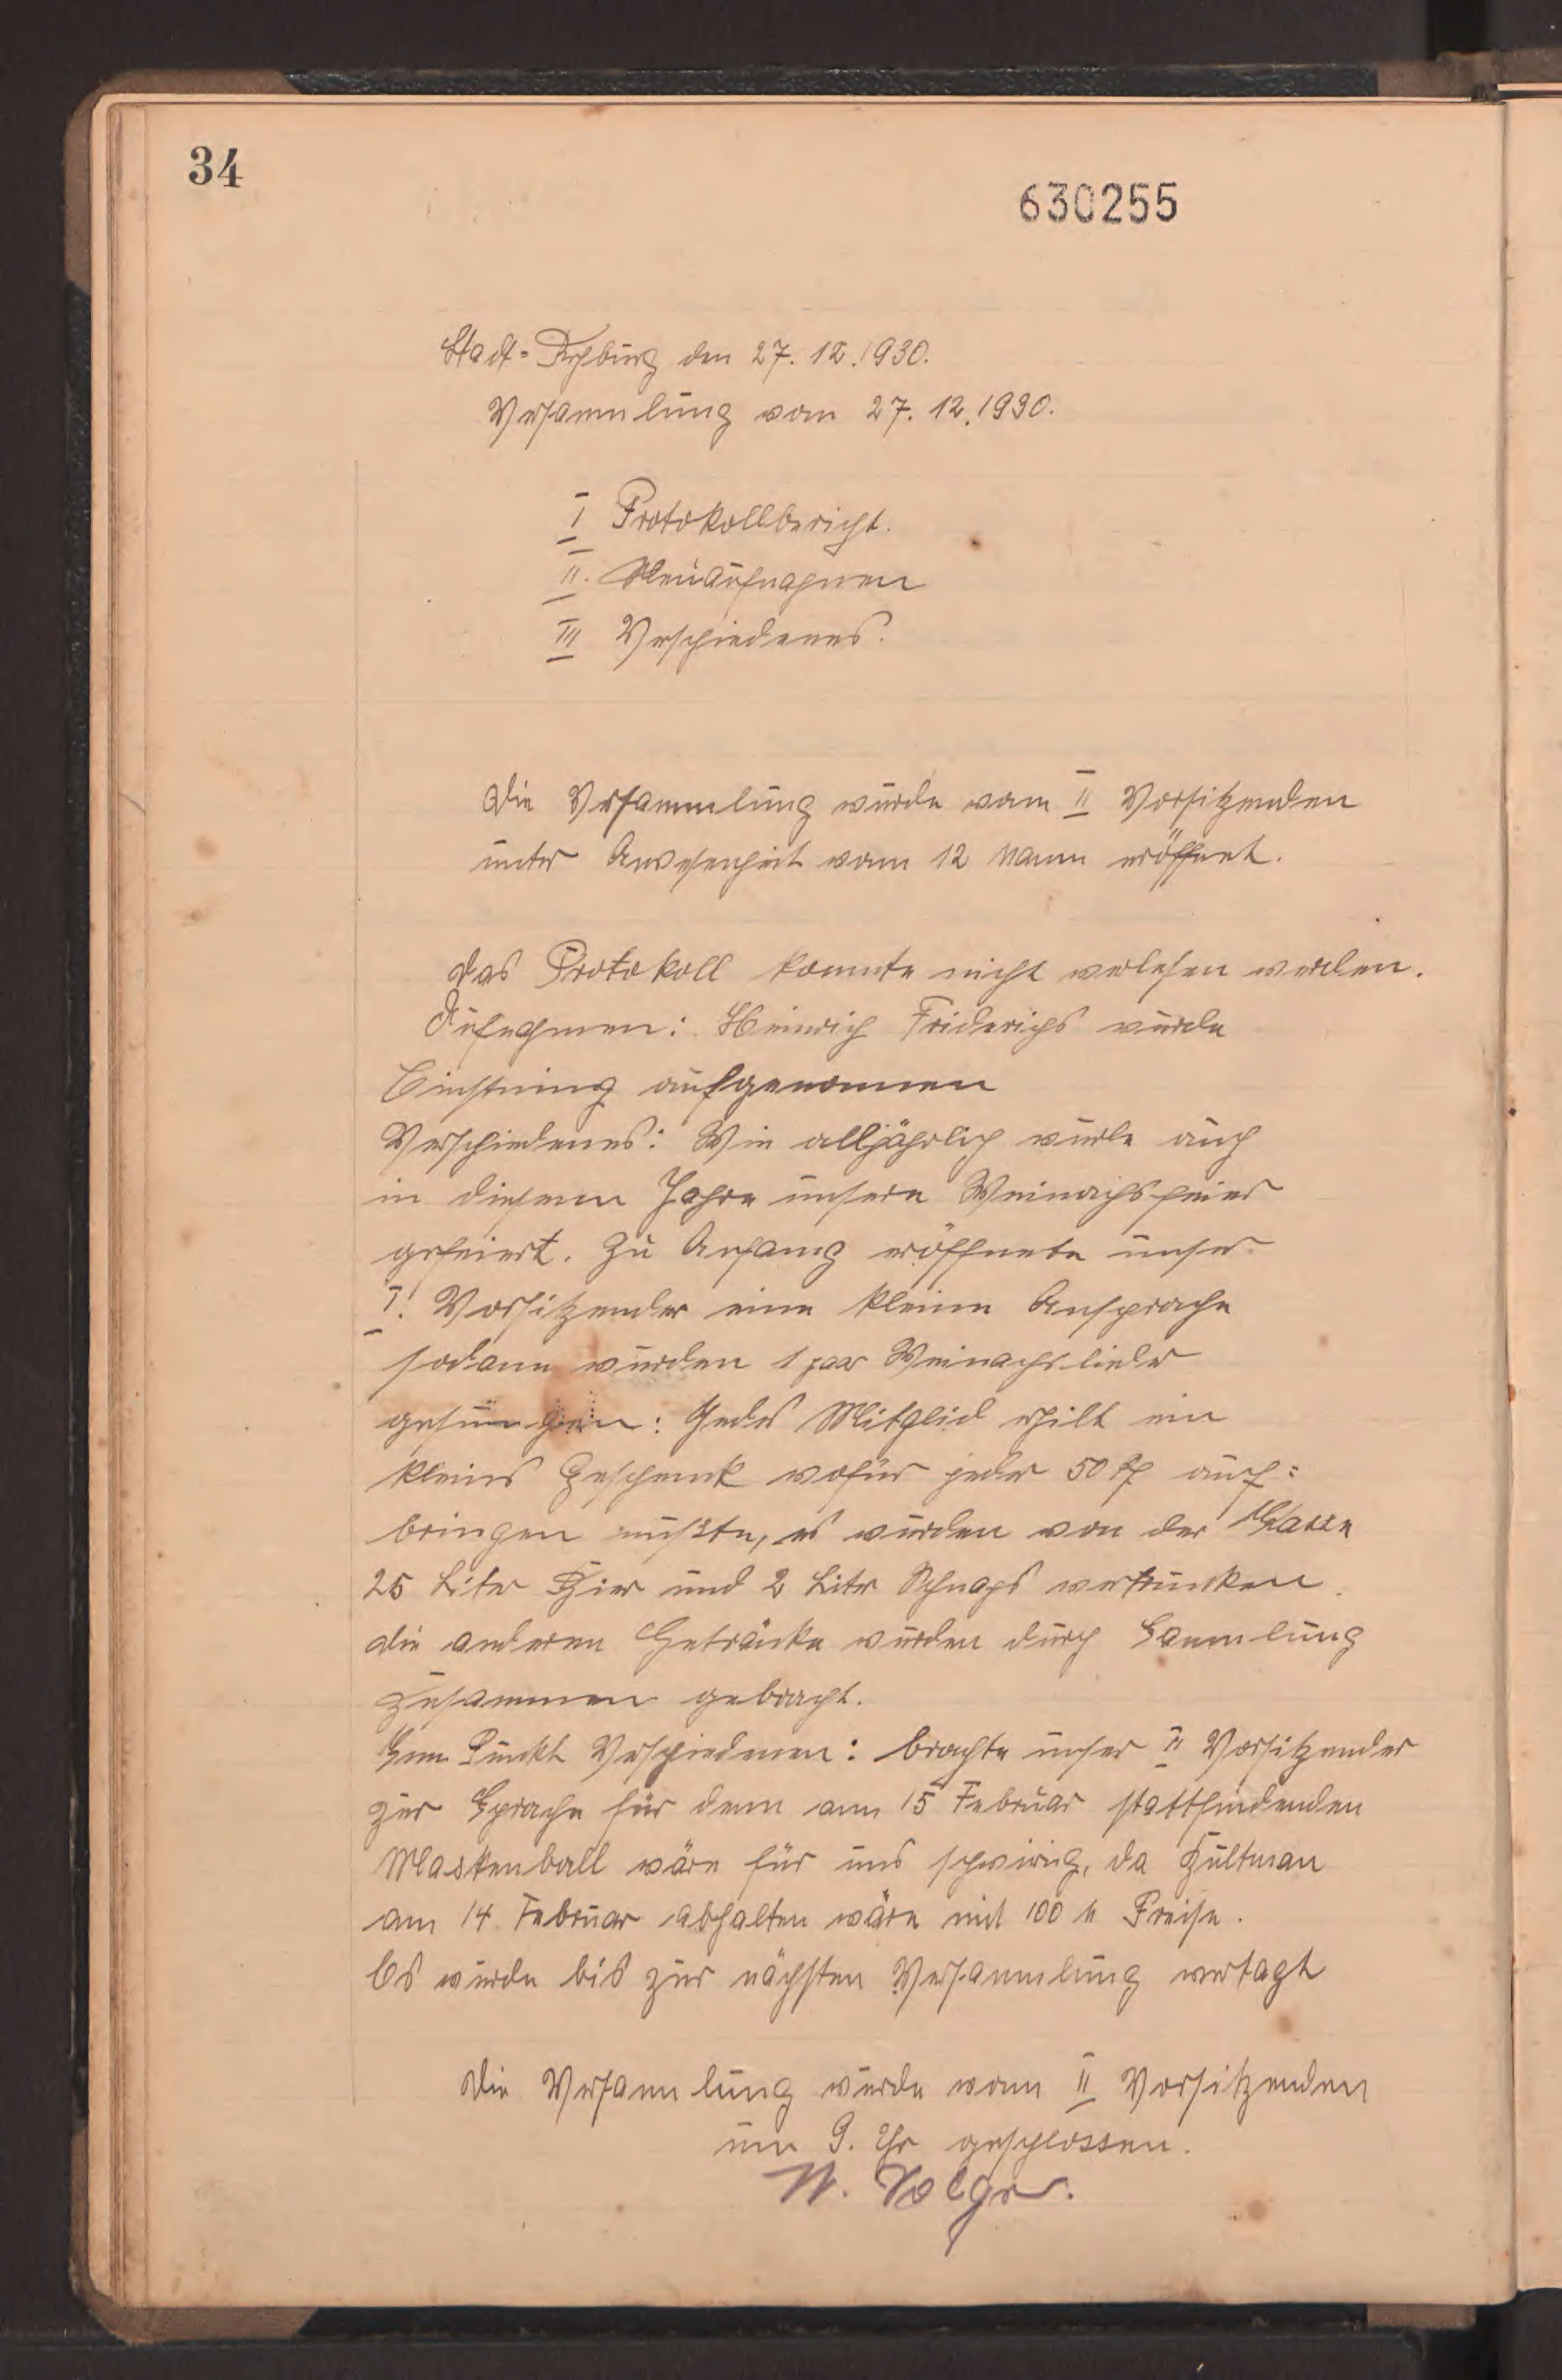 34
630255
Stadt-Rehburg den 27. 12. 1930.
Versammlung vom 27. 12. 1930.
I Protokollbericht.
II. Neuaufnahmen
III Verschiedenes.
Die Versammlung wurde vom II Vorsitzenden
unter Anwesenheit vom 12 Mann eröffnet.
Das Protokoll konnte nicht verlesen werden.
Aufnahmen: Heinrich Friderichs wurde
Einstimig aufgenommen
Verschiedenes: Wie alljährlich wurde auch
in diesem Jahre unsere Weinachsfeier
gefeiert. Zu Anfang eröffnete unser
I. Vorsitzender eine kleine Ansprache
sodann wurden 1 paar Weinachslieder
gesungen: Jedes Mitglied erhilt ein
kleines Geschenk wofür jeder 50 Pf auf=
bringen mußte, es wurden von der Kasse
25 Liter Bier und 2 Liter Schnaps vertrunken.
Die anderen Getränke wurden durch Sammlung
zusammen gebracht.
Zum Punkt Verschiedenen: brachte unser II Vorsitzender
zur Sprache für dem am 15 Februar stattfindenden
Maskenball wäre für uns schwirig, da
am 14. Februar abhalten wäre mit 100 M Preise.
Es wurde bis zur nächsten Versammlung vertagt
Die Versammlung wurde vom II Vorsitzenden
um 9. Uhr geschlossen.
W. Volger.